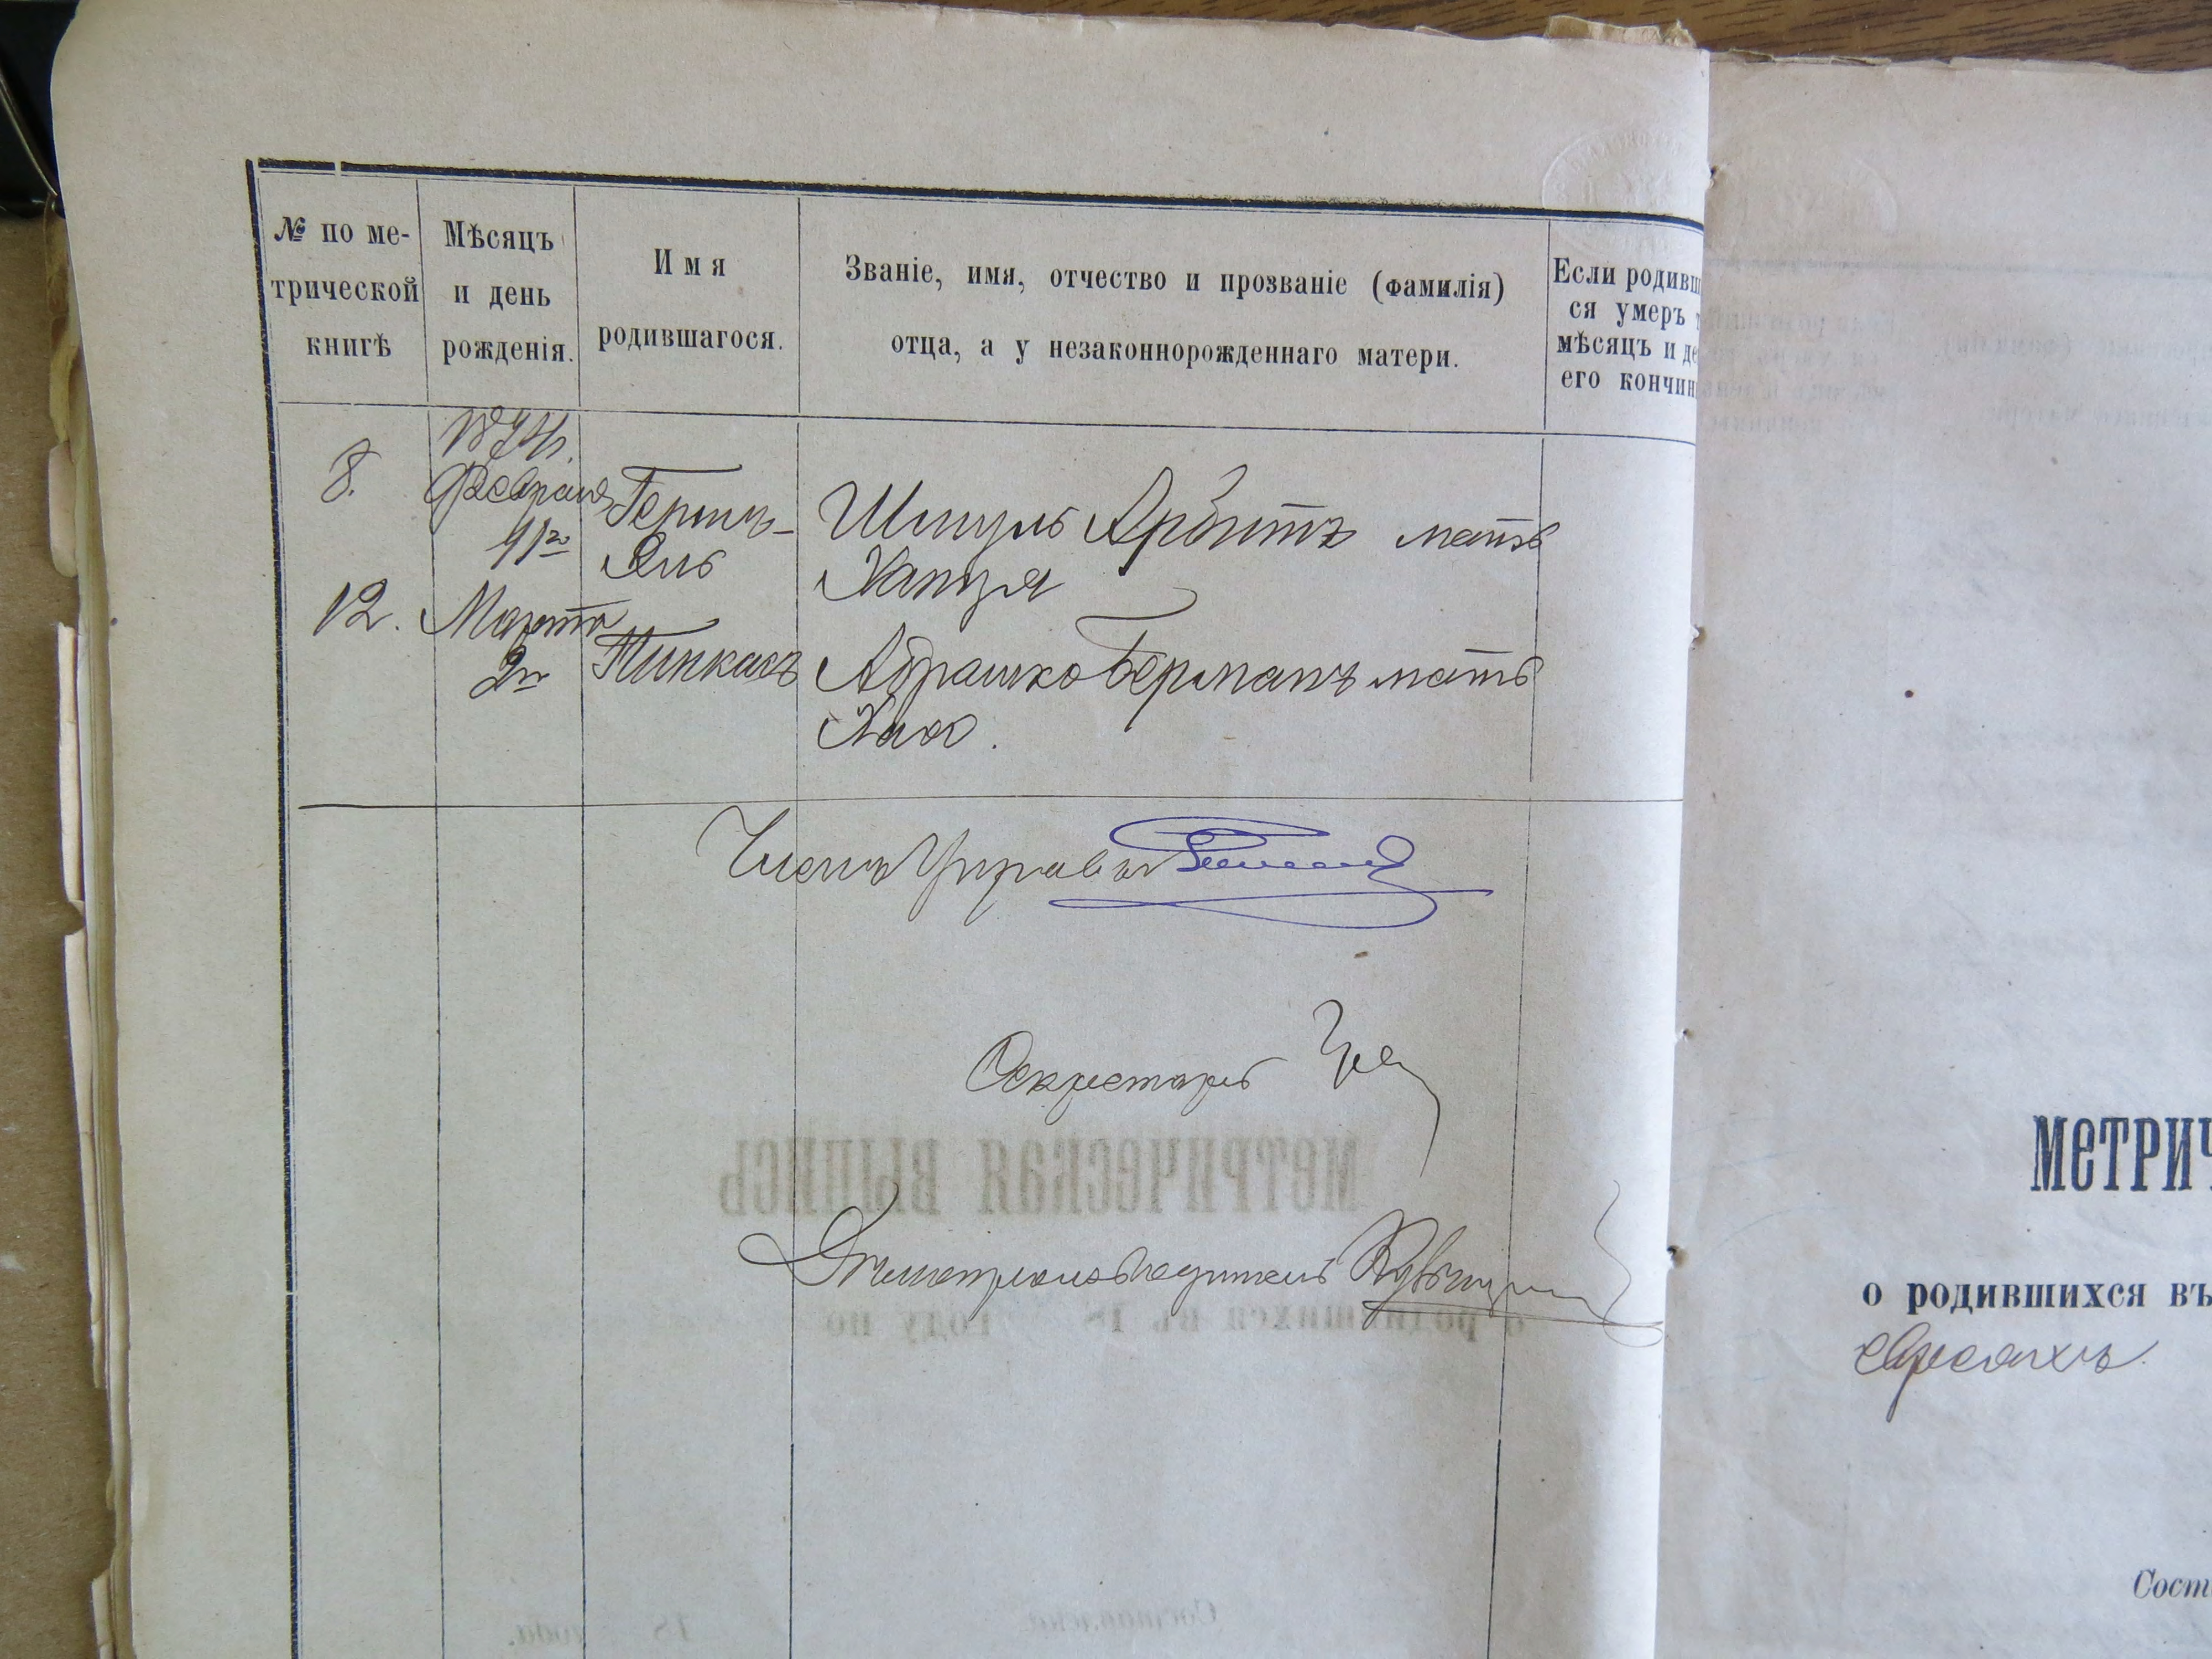 № по ме-
трической
книгѣ
Мѣсяцъ
и день
рожденія.
Имя
родившагося.
Званіе, имя, отчество и прозваніе (фамилія)
отца, а у незаконнорожденнаго матери.
Если родивш
ся умеръ
мѣсяцъ и де
его кончин
8.
1874г.
Февраля
11го
Гершъ-
Яль
Шмуль Арбитъ мать
Ханця
12.
Марта
2го
Пинкасъ
Абрашко Берманъ мать
Хая.
Членъ Управы
Секретарь
МЕТРИЧ
о родившихся въ
евреяхъ.
Сост